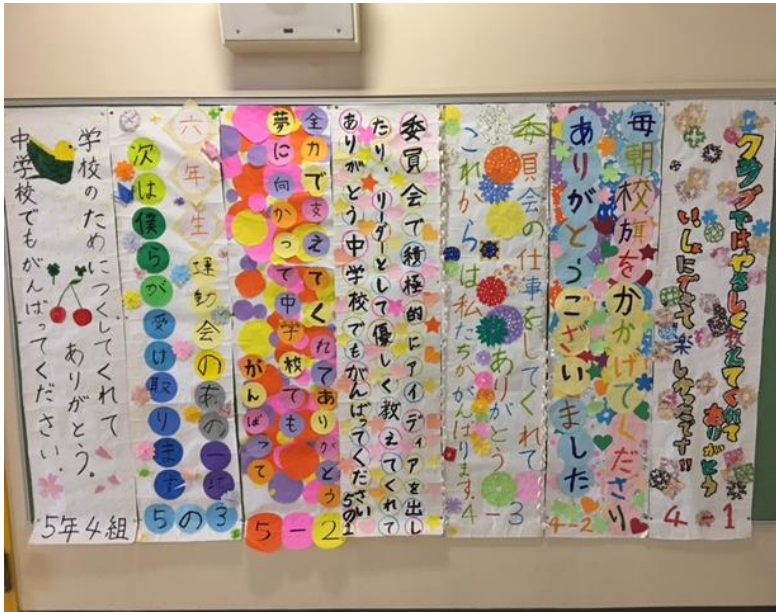 クラブではやさしく教えてくれて
ありがとう
いっしょにできて楽しかったです!!
4-1
毎朝校旗をかかげてくださり
ありがとうございました
4-2
委員会の仕事をしてくれて
ありがとう
これからは私たちががんばります。
4-3
委員会で積極的にアイディアを出し
たり、リーダーとして優しく教えてくれて
ありがとう中学校でもがんばってください
5の1
全力で支えてくれてありがとう
夢に向かって中学校でも
がんばって
5-2
六年生
運動会のあの一
次は僕らが受け取ります
5の3
学校のためにつくしてくれて
ありがとう。
中学校でもがんばってください。
5年4組